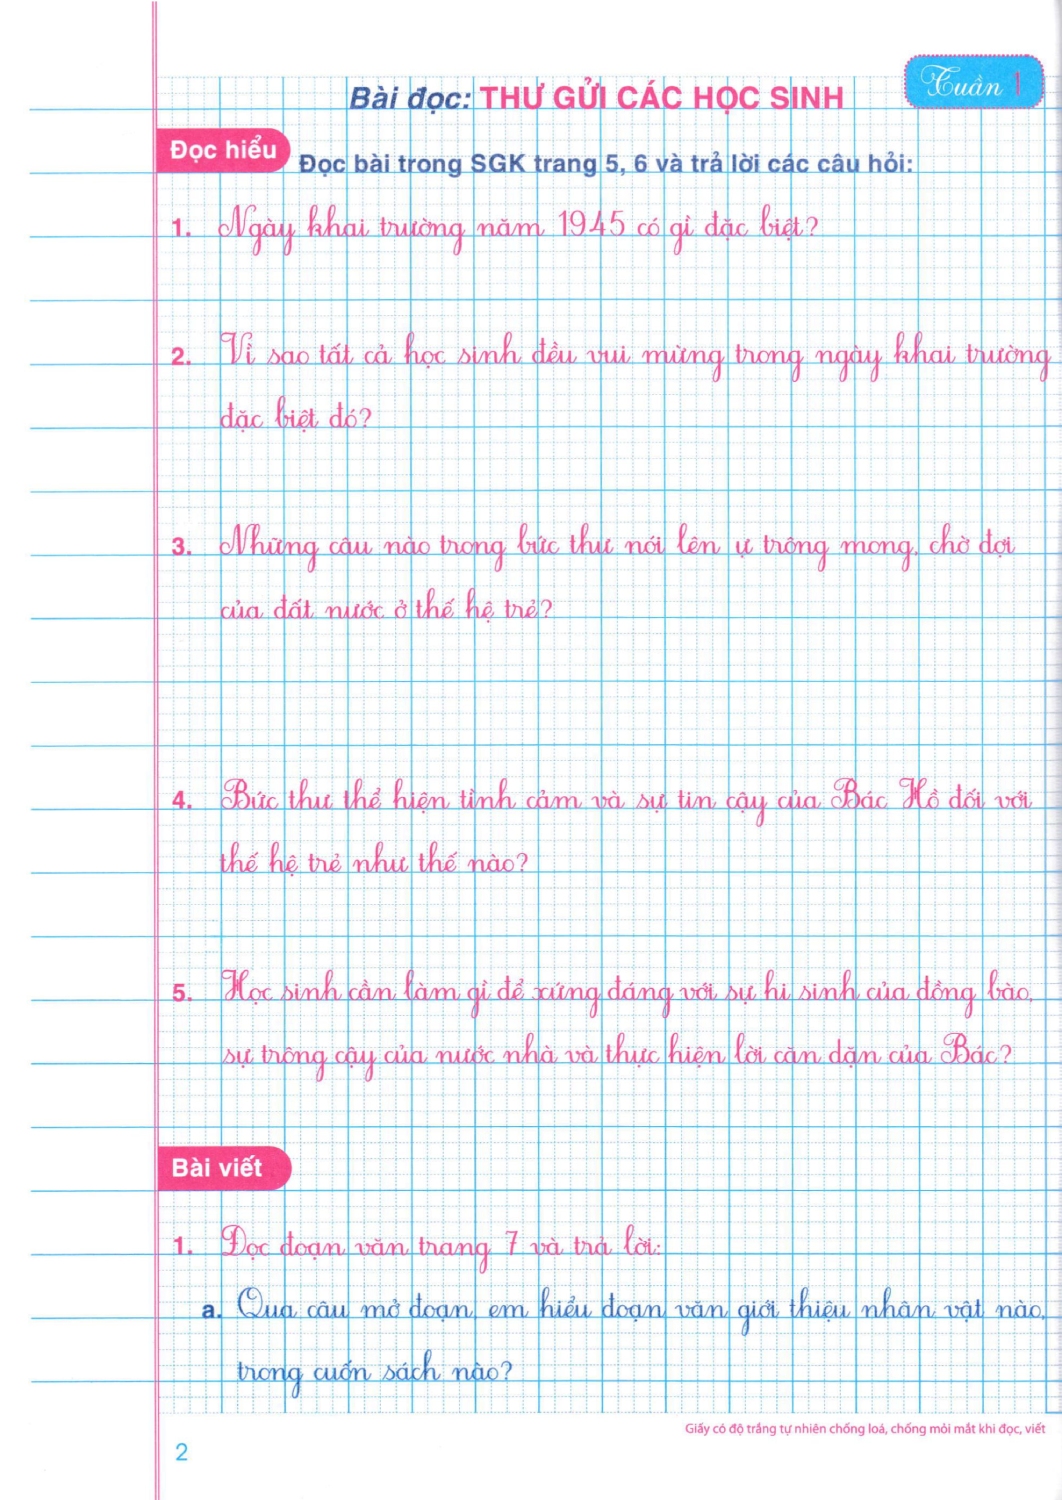 Tuần 1
Bài đọc: THƯ GỬI CÁC HỌC SINH
Đọc hiểu
Đọc bài trong SGK trang 5, 6 và trả lời các câu hỏi:
1. Ngày khai trường năm 1945 có gì đặc biệt?
2. Vì sao tất cả học sinh đều vui mừng trong ngày khai trường
đặc biệt đó?
3. Những câu nào trong bức thư nói lên ự trông mong, chờ đợi
của đất nước ở thế hệ trẻ?
4. Bức thư thể hiện tình cảm và sự tin cậy của Bác Hồ đối với
thế hệ trẻ như thế nào?
5. Học sinh cần làm gì để xứng đáng với sự hi sinh của đồng bào,
sự trông cậy của nước nhà và thực hiện lời căn dặn của Bác?
Bài viết
1. Đọc đoạn văn trang 7 và trả lời:
a. Qua câu mở đoạn, em hiểu đoạn văn giới thiệu nhân vật nào,
trong cuốn sách nào?
Giấy có độ trắng tự nhiên chống loá, chống mỏi mắt khi đọc, viết
2